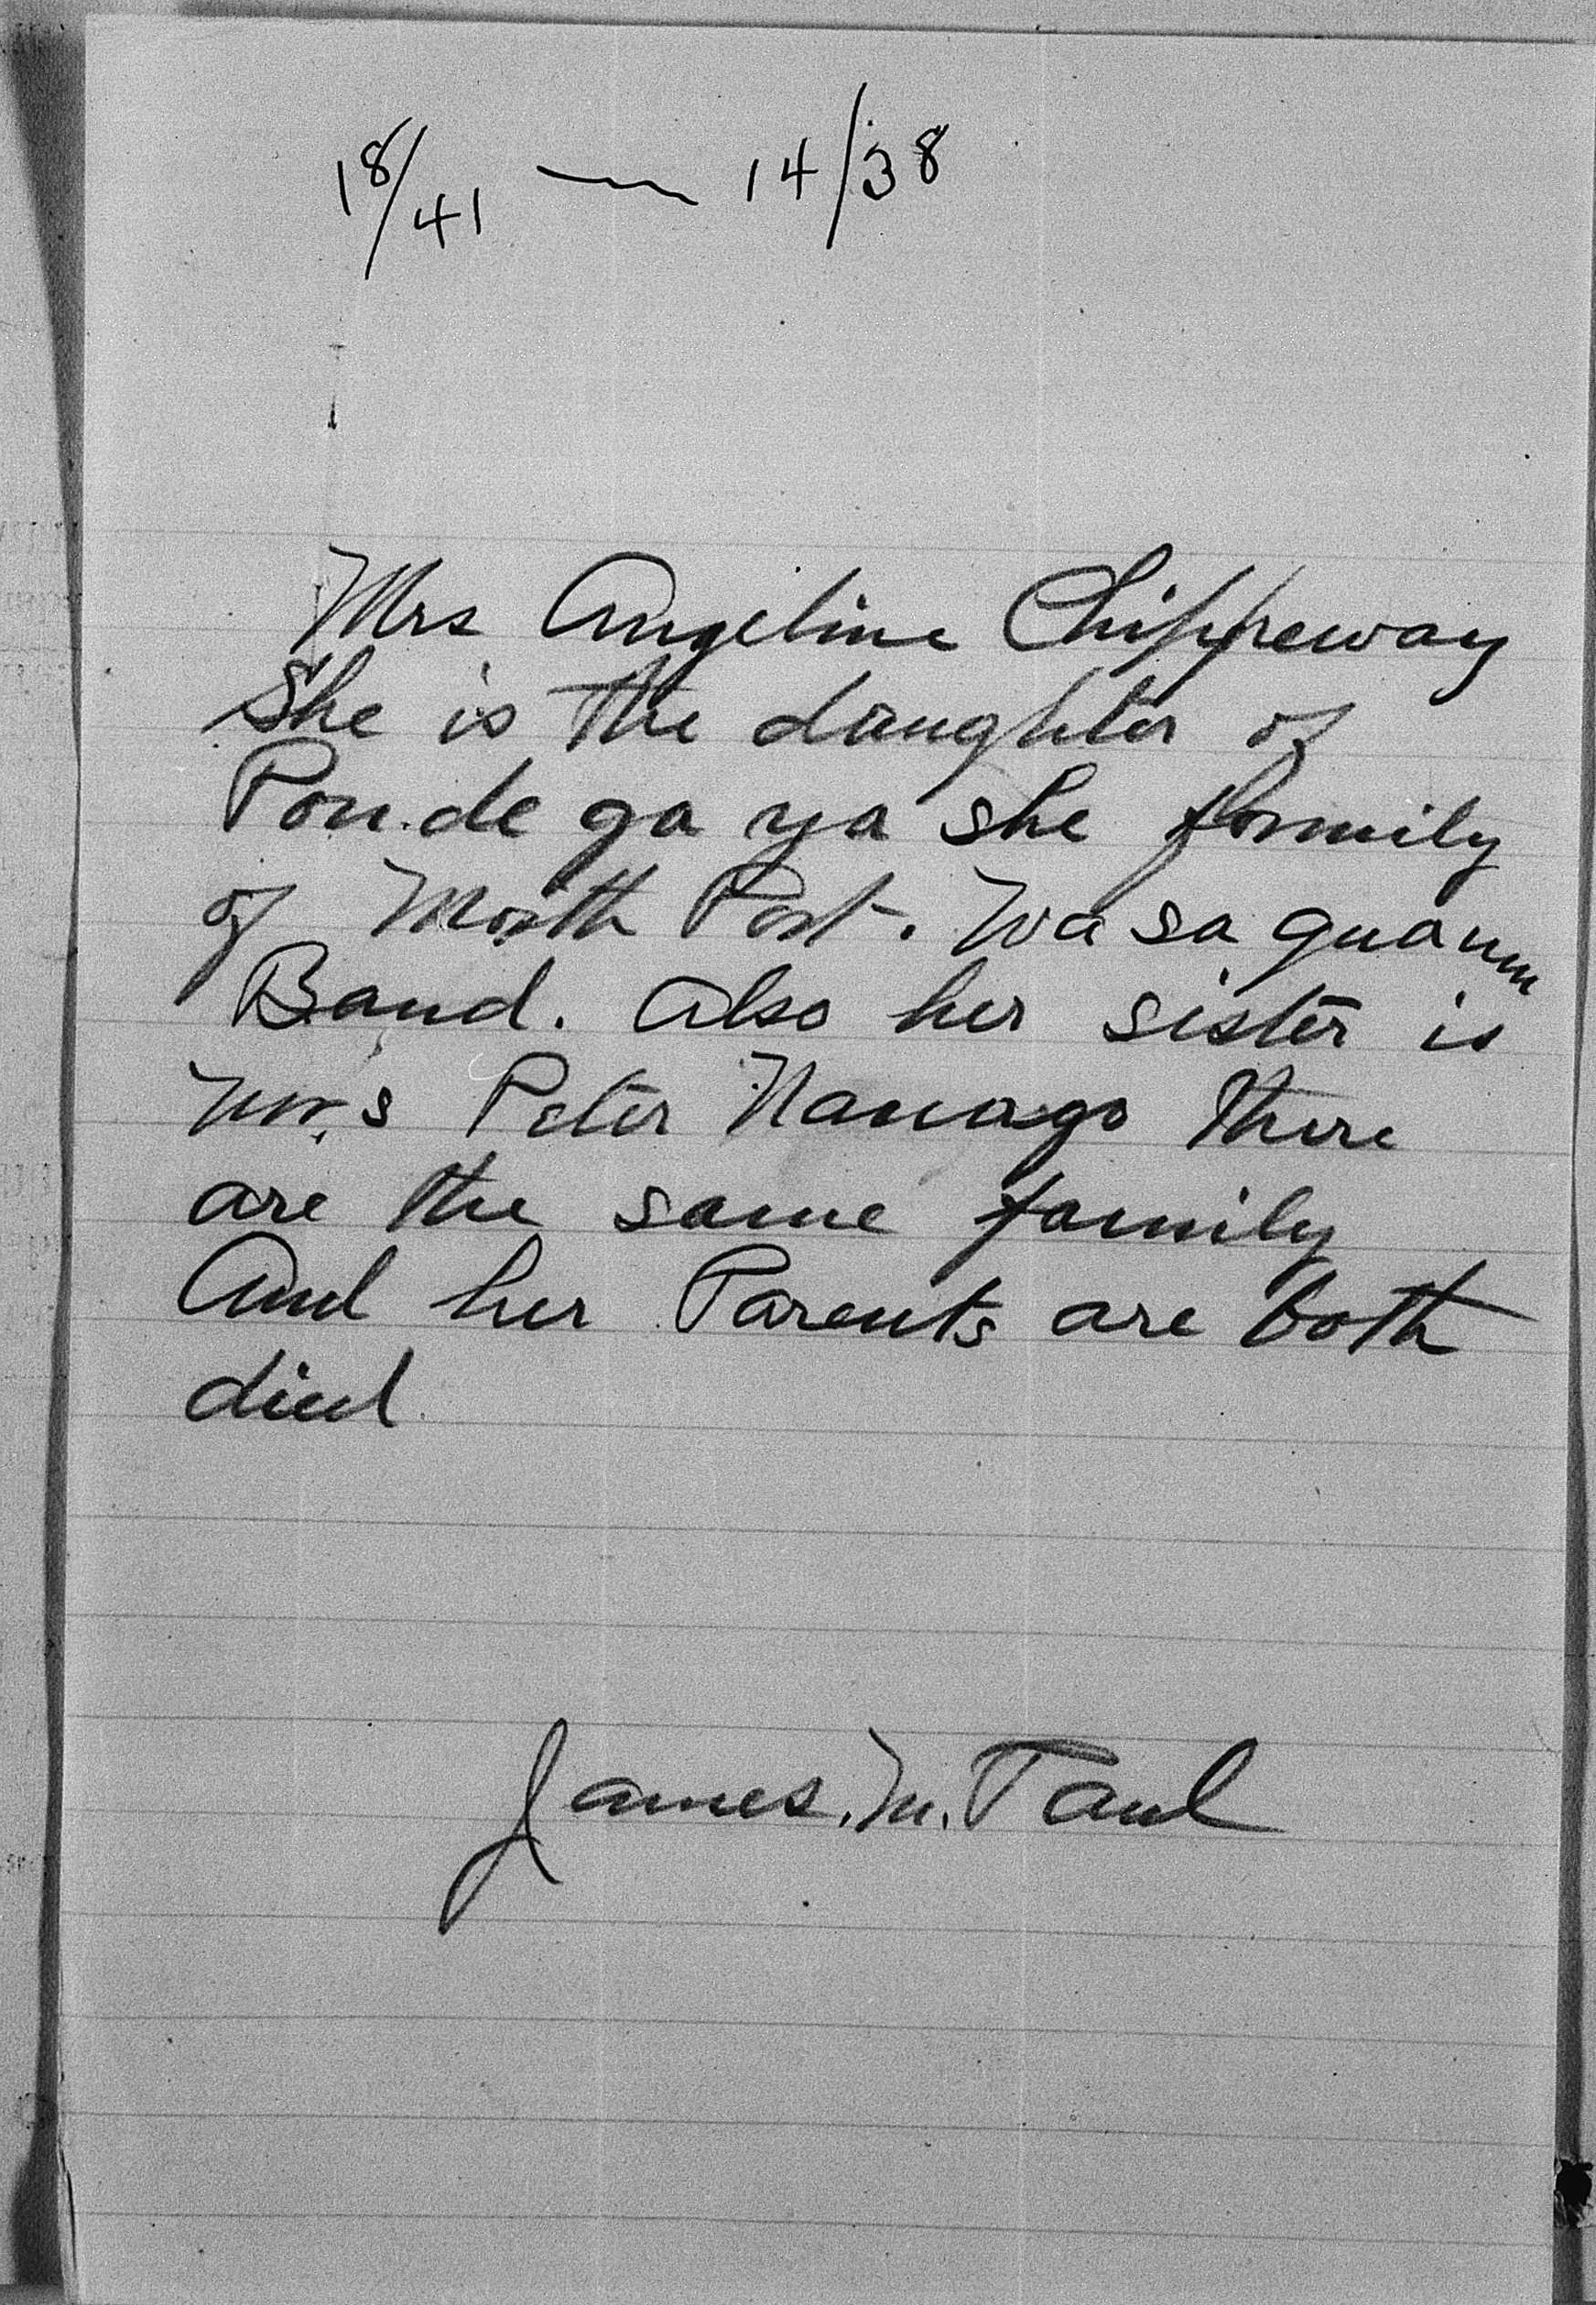 18/41 — 14/38
Mrs Angeline Chippeway
She is the daughter of
Pon.de ga ya she family
of North Port. Wa sa quam
Band. Also her sister is
Mrs Peter Nanago there
are the same family
And her Parents are both
died
James. M. Paul